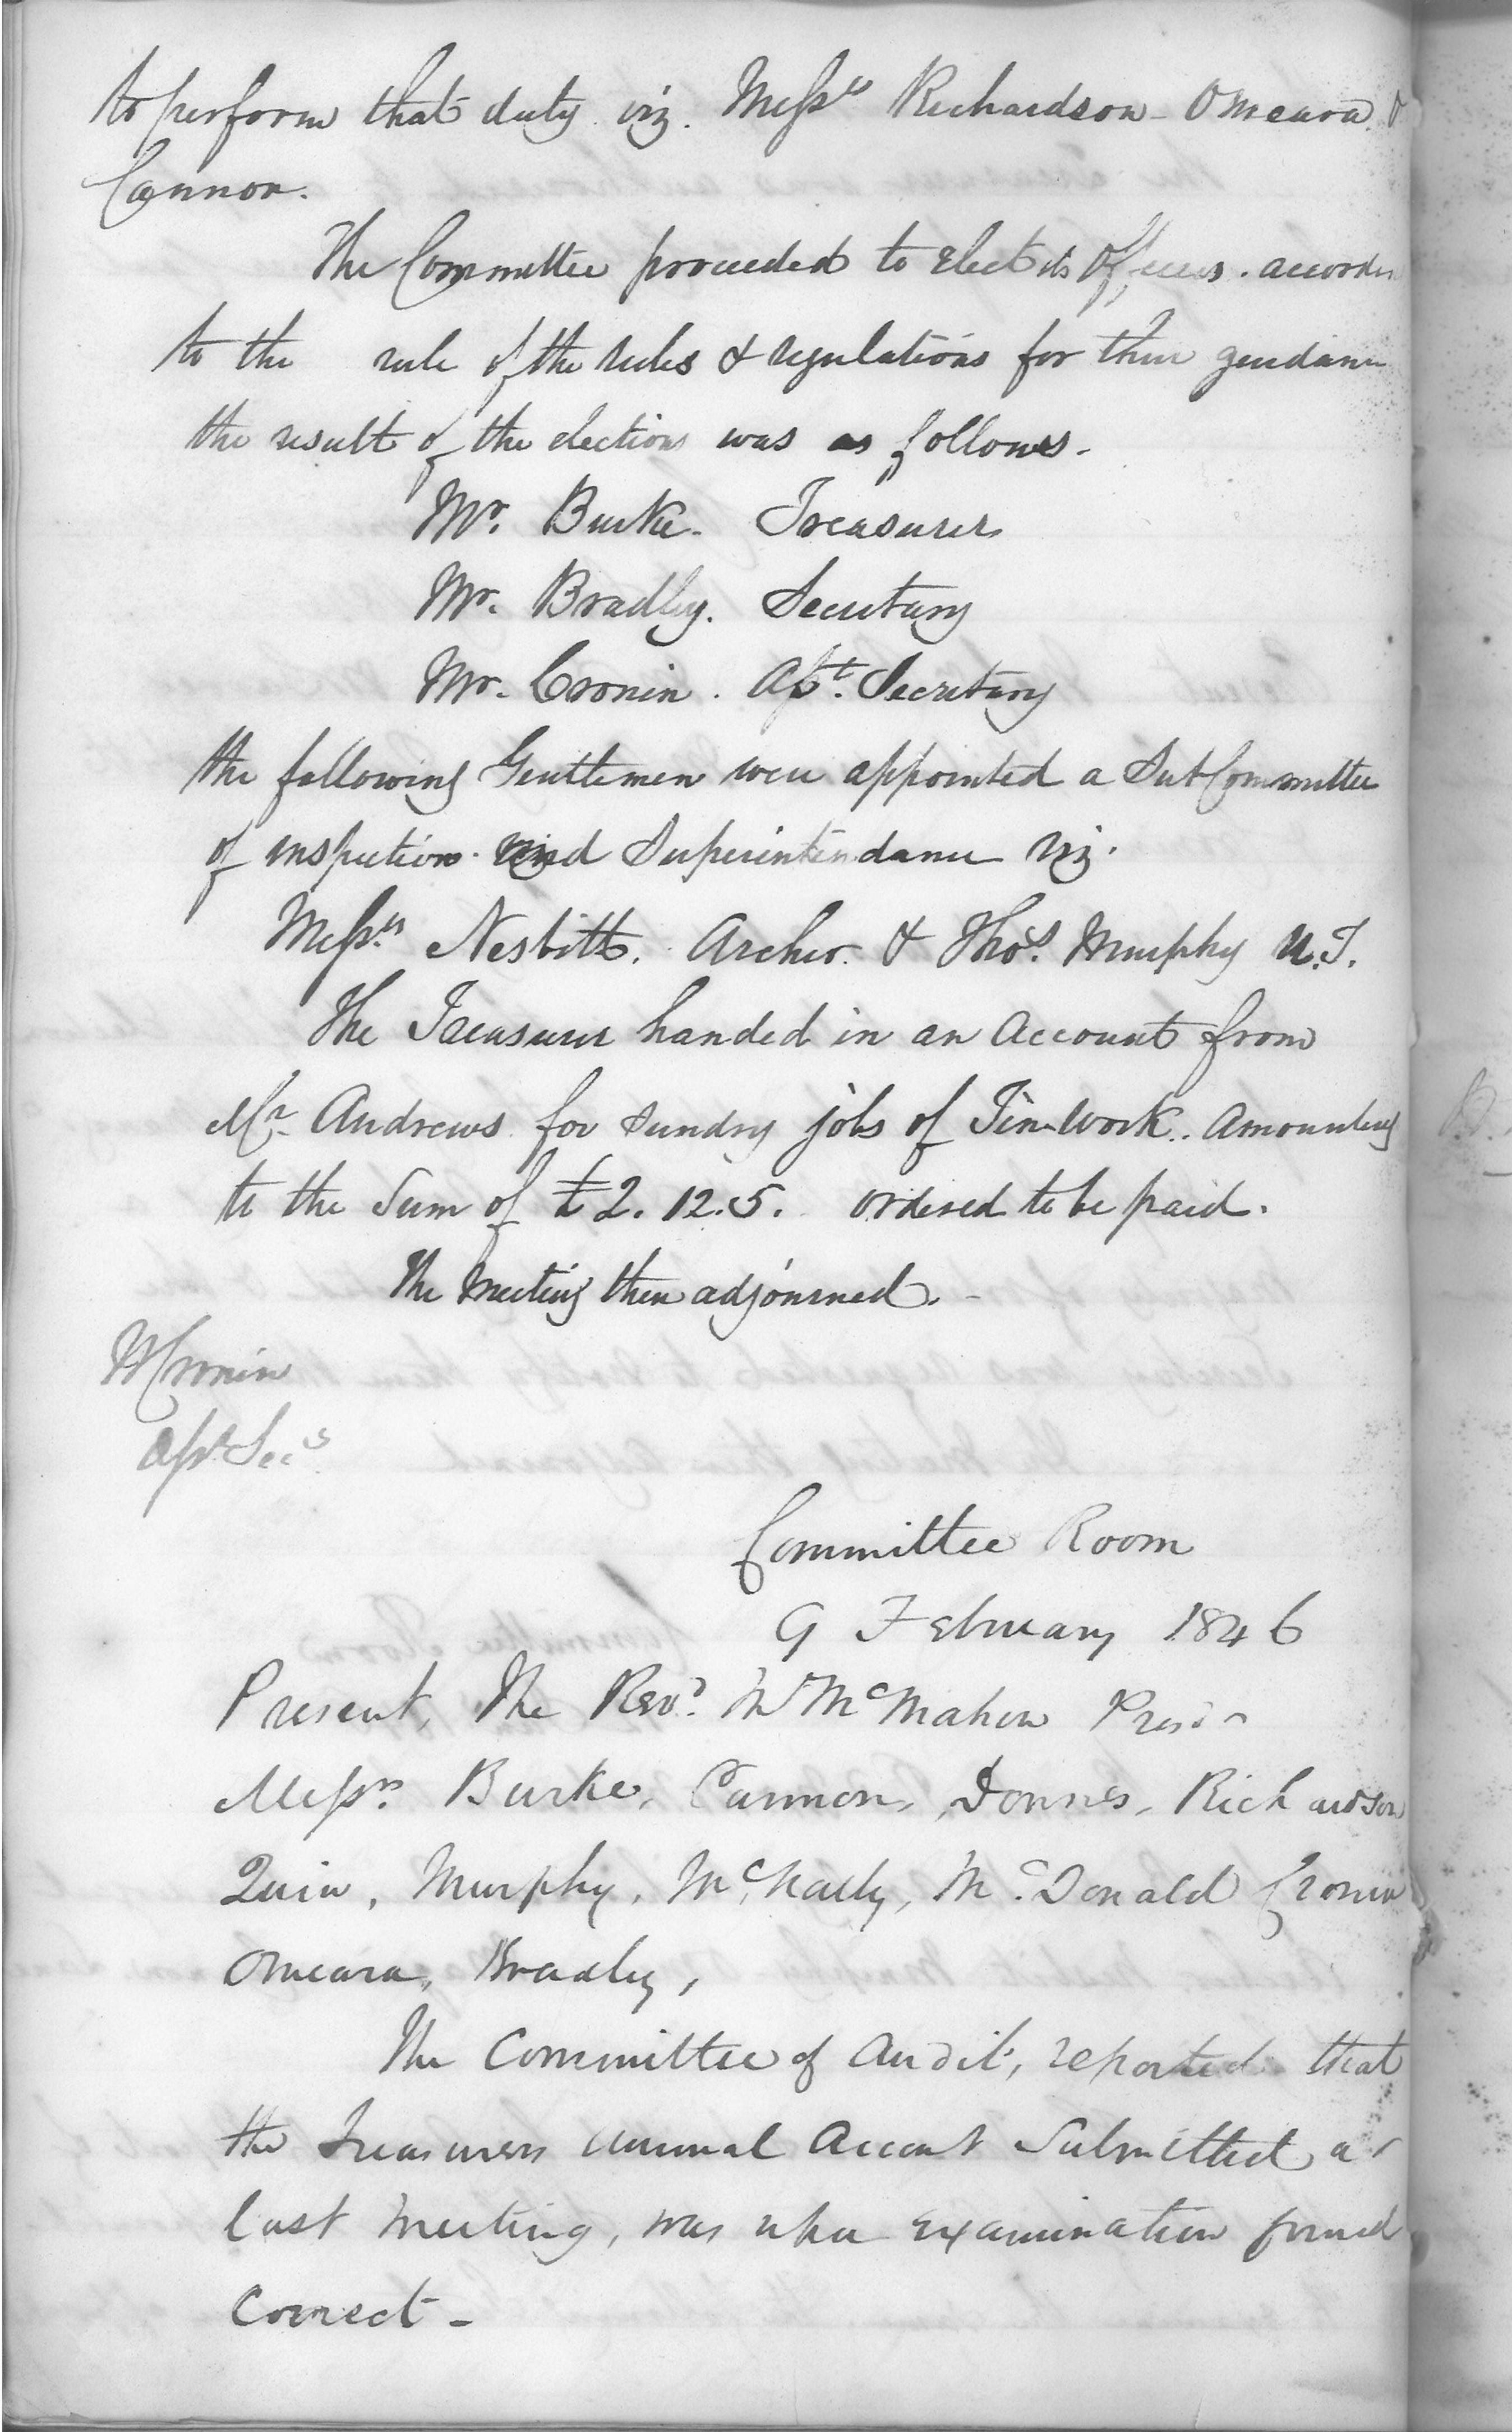 to perform that duty viz. Messrs Richardson - OMeara &
Cannon.
The Committee proceeded to Elect its Officers. accordin
to the rule of the rules & regulations for their guidance
the result of the elections was as follows.
Mr. Burke. Treasurer
Mr. Bradley. Secretary
Mr. Cronin. Asst. Secretary
the following Gentlemen were appointed a Sub Committee
of inspection and Superintendance viz.
Messrs Nesbitt. Archer. & Thos. Murphy U.T.
The Treasurer handed in an Account from
Mr Andrews for Sundry jobs of Tin-Work. Amounting
to the Sum of £2.12.5. ordered to be paid.
The Meeting then adjourned.
Cronin
Asst Secy
Committee Room
9 February 1846
Present, The Revd. Mr McMahon Presdt
Messrs. Burke, Cannon, Richardson
Quin, Murphy, McNally, McDonald Cronin
OMeara, Bradley,
The Committee of Audit, reported that
the Treasurers annual Account Submitted at
last Meeting, was upon examination found
Correct -